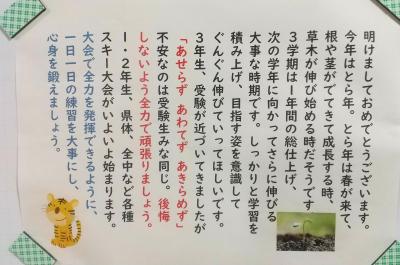 明けましておめでとうございます。
今年はとら年。とら年は春が来て、
根や茎がでてきて成長する時、
草木が伸び始める時だそうです。
３学期は１年間の総仕上げ、
次の学年に向かってさらに伸びる
大事な時期です。しっかりと学習を
積み上げ、目指す姿を意識して
ぐんぐん伸びていってほしいです。
３年生、受験が近づいてきましたが
「あせらず あわてず あきらめず」
不安なのは受験生みな同じ。後悔
しないよう全力で頑張りましょう。
１・２年生、県体、全中など各種
スキー大会がいよいよ始まります。
大会で全力を発揮できるように、
一日一日の練習を大事にし、
心身を鍛えましょう。